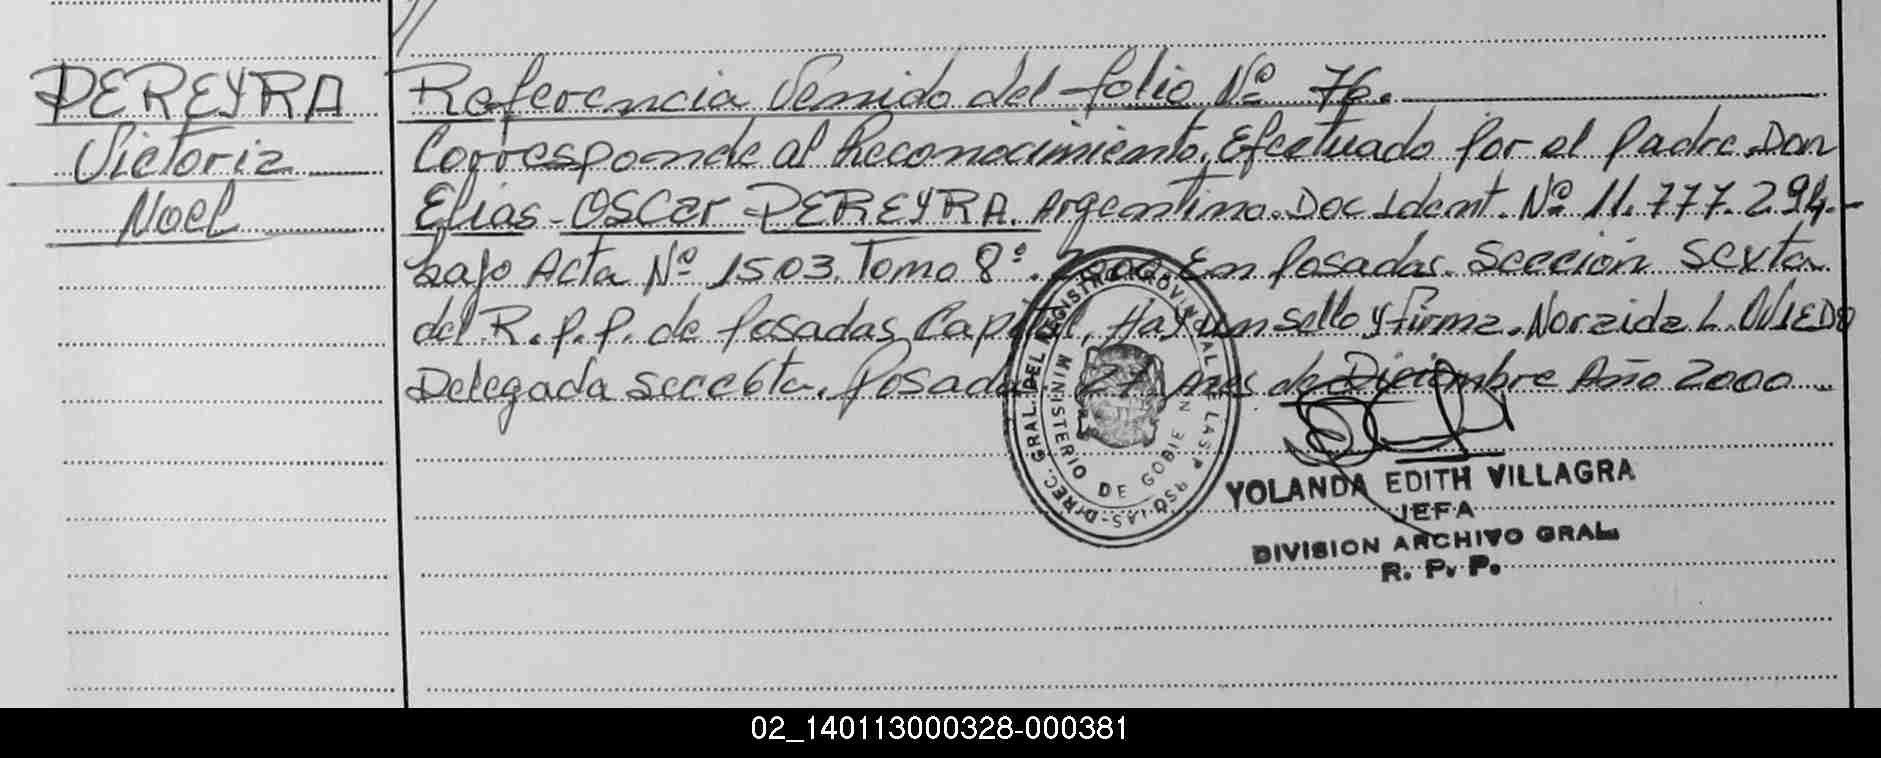 PEREYRA
Victoria
Noel
Referencia Venido del folio Nº 76.
Corresponde al Reconocimiento. Efectuado por el padre. Don
Elias - OSCAR - PEREYRA. Argentino. Doc Ident. Nº 11.777.294.-
bajo Acta Nº 1503. Tomo 8º. 2000. En Posadas. Sección Sexta
del R. P. P. de Posadas Capital, Hay un sello y firma. Noraida L. OVIEDO
Delegada Posadas 27 de Diciembre Año 2000
DIREC. GRAL. DEL REGISTRO PROVINCIAL DE LAS PERSONAS
MINISTERIO DE GOBIERNO
YOLANDA EDITH VILLAGRA
JEFA
DIVISION ARCHIVO GRAL.
R. P. P.
02_140113000328-000381